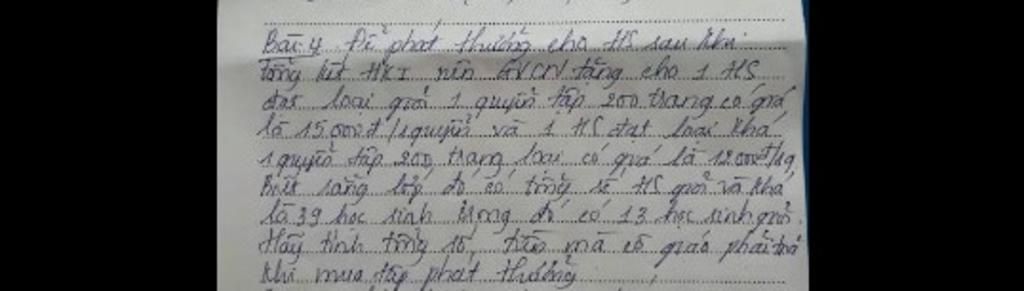 Bài 4 Để phát thưởng cho HS sau khi
tổng kết HKI nên GVCN tặng cho 1 HS
đạt loại giỏi 1 quyển tập 200 trang có giá
là 15.000đ/1quyển và 1 HS đạt loại khá
1 quyển tập 200 trang loại có giá là 12.000đ/1q
Biết rằng lớp đó có tổng số HS giỏi và khá
là 39 học sinh trong đó có 13 học sinh giỏi.
Hãy tính tổng số tiền mà cô giáo phải trả
khi mua tập phát thưởng